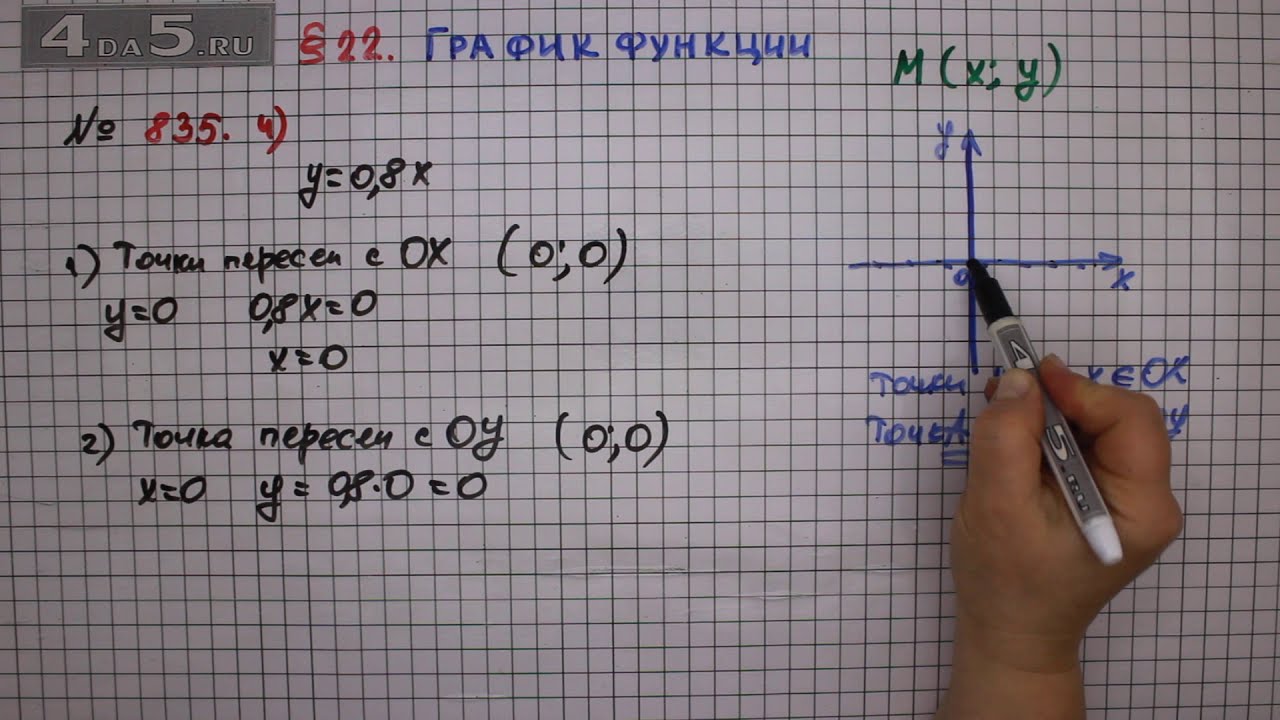 4DA5.RU
§ 22. ГРАФИК ФУНКЦИИ
M (x; y)
№ 835. 4)
y=0,8x
1) Точки пересеч с OX (0; 0)
y=0 0,8x=0
x=0
2) Точка пересеч с OY (0; 0)
x=0 y = 0,8·0=0
y
0
x
Точки ∈ OX
ТочкА OY
4 5.RU